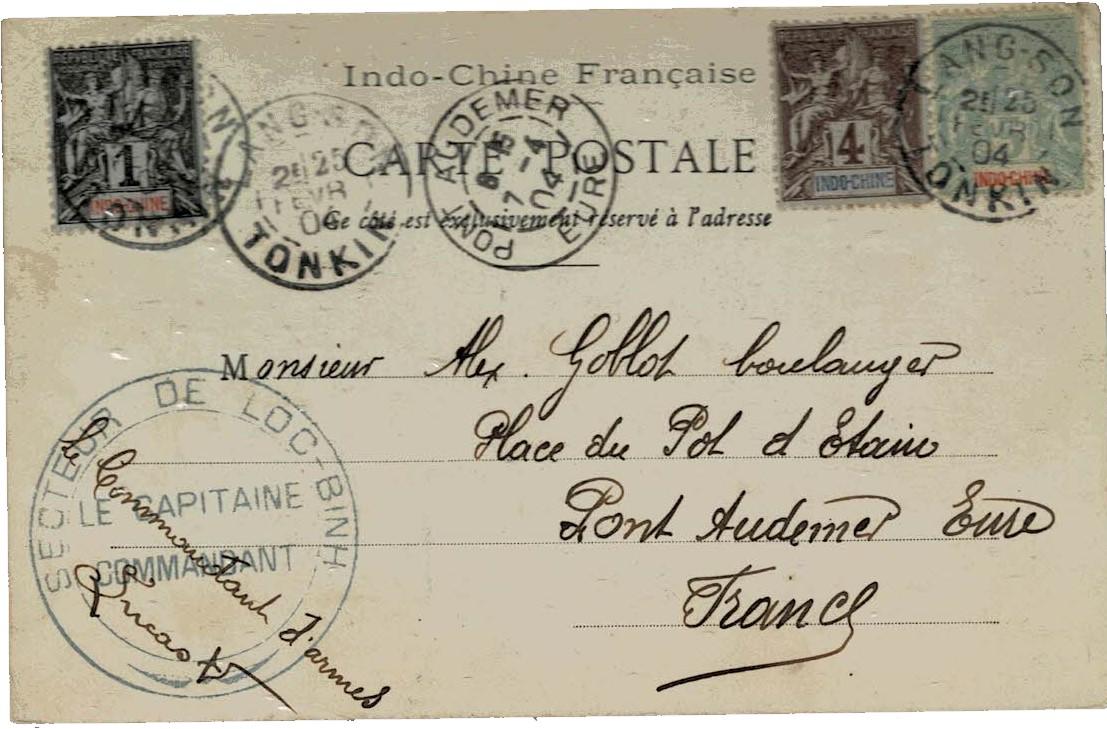 RÉPUBLIQUE FRANÇAISE
1
INDO-CHINE
LANG-SON
2E/25
FEVR
04
TONKIN
Indo-Chine Française
CARTE POSTALE
Ce côté est exclusivement réservé à l'adresse
PONT AUDEMER
8-15
7-4
04
EURE
4
INDO-CHINE
INDO-CHINE
LANG-SON
2E/25
FEVR
04
TONKIN
Monsieur Alex. Goblot boulanger
Place du Pot d Etain
Pont Audemer Eure
France
SECTEUR DE LOC-BINH
LE CAPITAINE
COMMANDANT
le Commandant d'armes